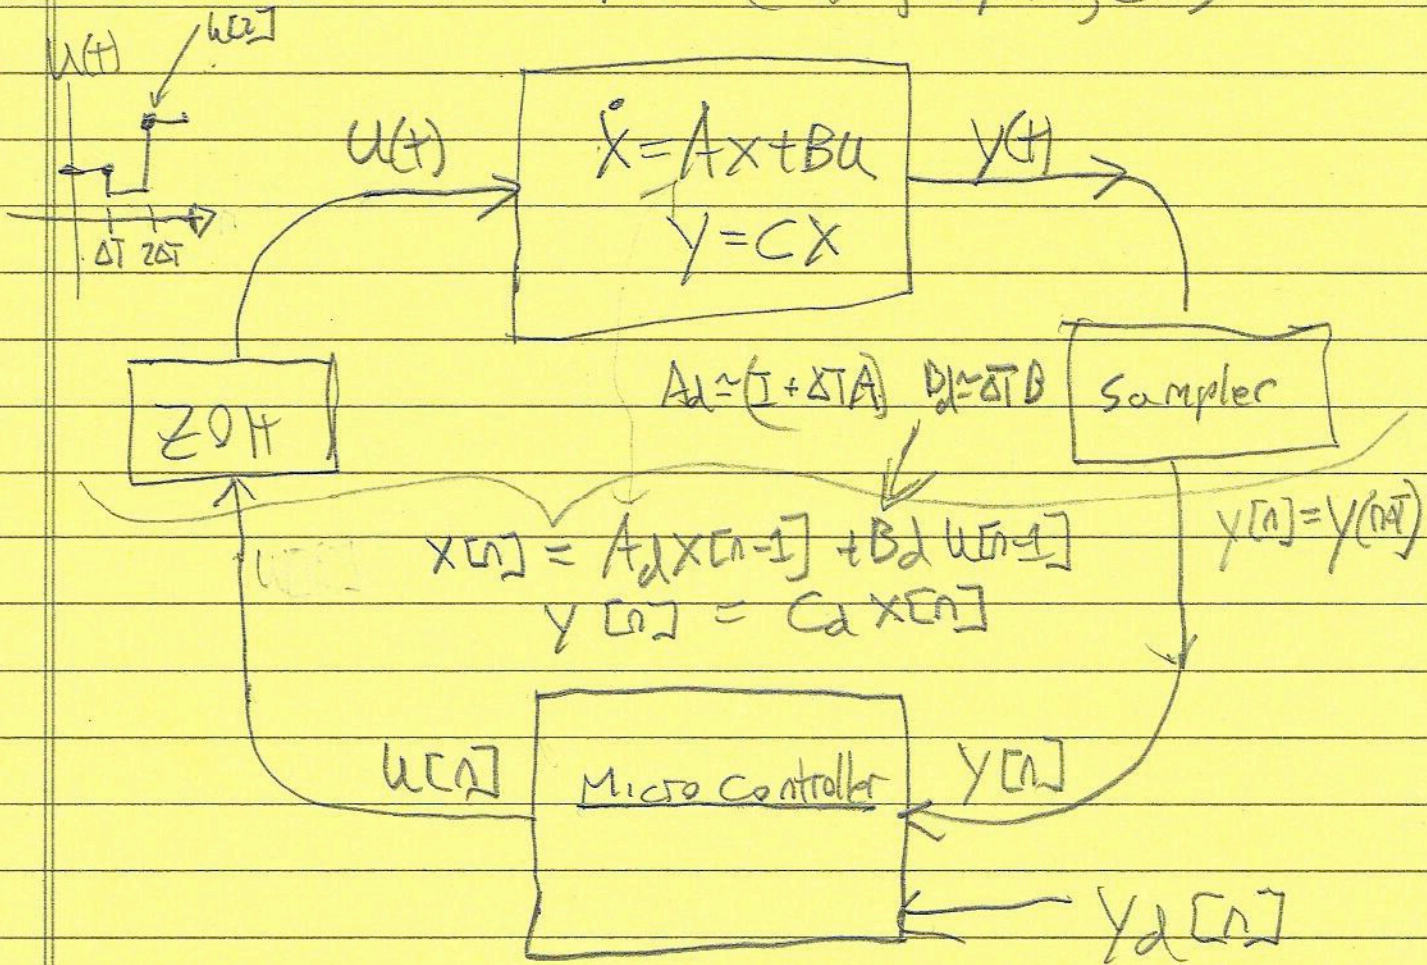 u(t)
u[2]
ΔT 2ΔT
u(t)
ẋ=Ax+Bu
y=Cx
y(t)
ZOH
Ad≃(I+ΔTA) Bd≃ΔTB
Sampler
x[n] = Adx[n-1] +Bd u[n-1]
y[n] = Cd x[n]
y[n]=y(nΔT)
u[n]
Micro Controller
y[n]
yd[n]